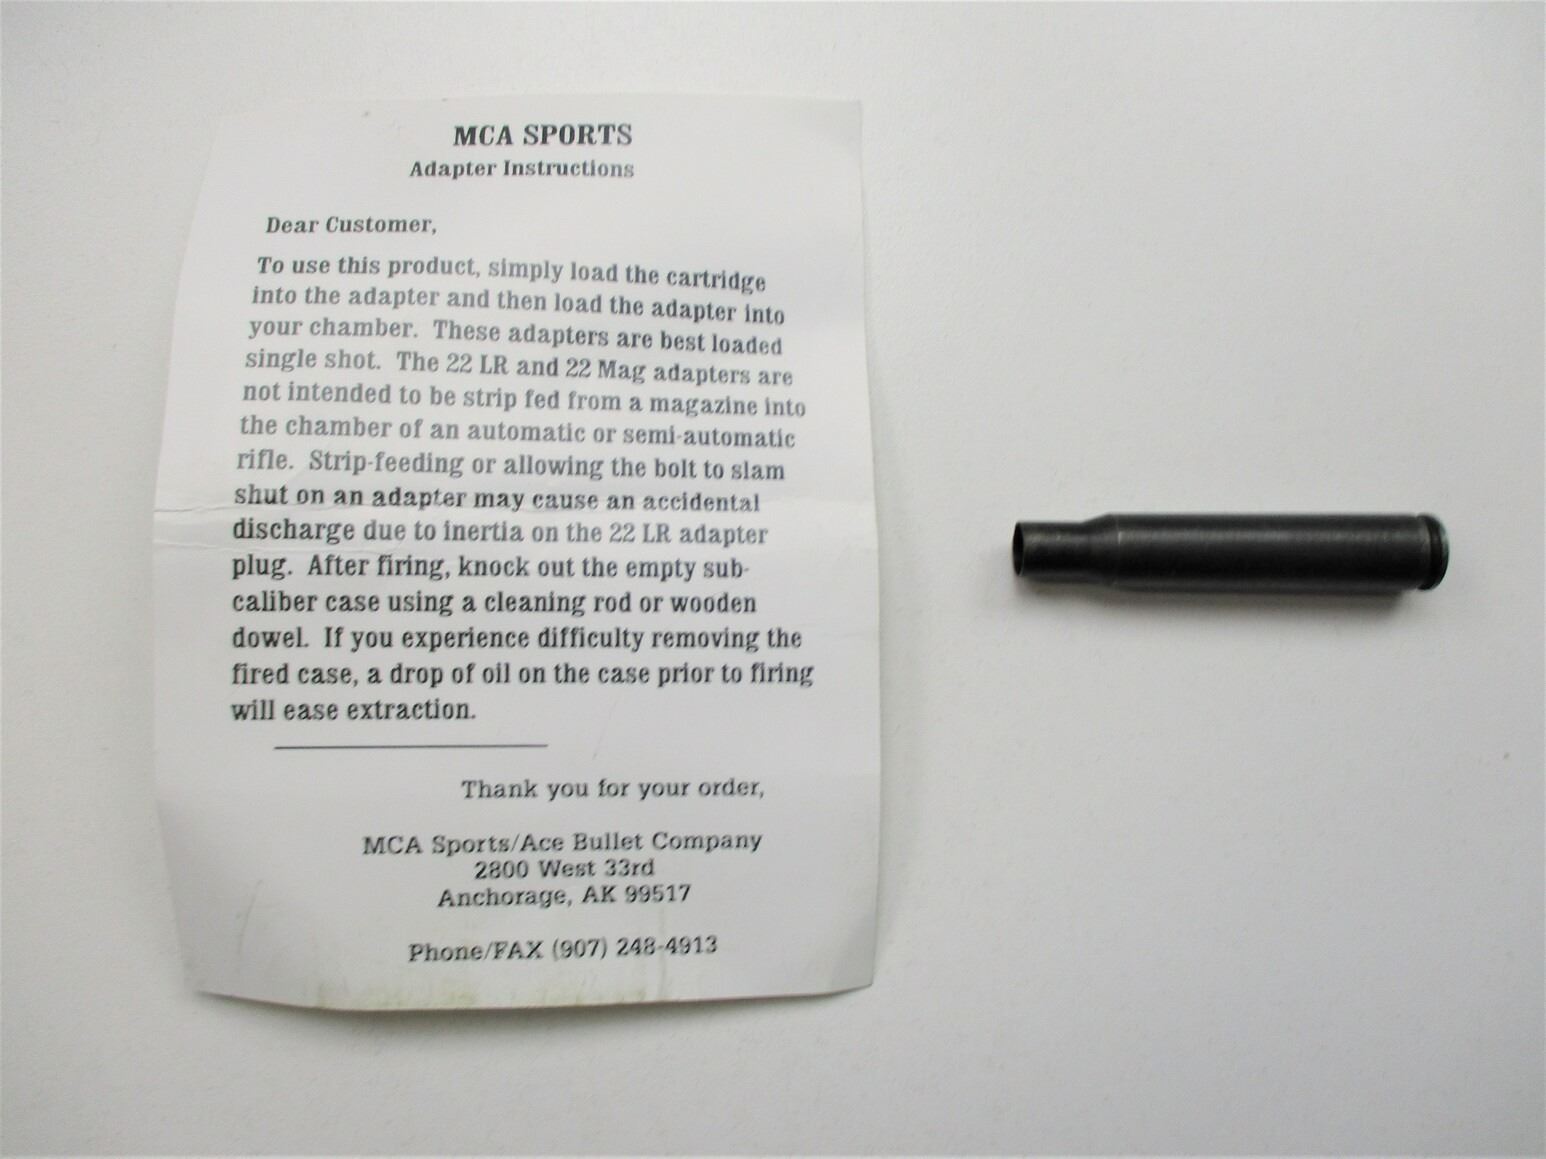 MCA SPORTS
Adapter Instructions
Dear Customer,
To use this product, simply load the cartridge
into the adapter and then load the adapter into
your chamber. These adapters are best loaded
single shot. The 22 LR and 22 Mag adapters are
not intended to be strip fed from a magazine into
the chamber of an automatic or semi-automatic
rifle. Strip-feeding or allowing the bolt to slam
shut on an adapter may cause an accidental
discharge due to inertia on the 22 LR adapter
plug. After firing, knock out the empty sub-
caliber case using a cleaning rod or wooden
dowel. If you experience difficulty removing the
fired case, a drop of oil on the case prior to firing
will ease extraction.
Thank you for your order,
MCA Sports/Ace Bullet Company
2800 West 33rd
Anchorage, AK 99517
Phone/FAX (907) 248-4913